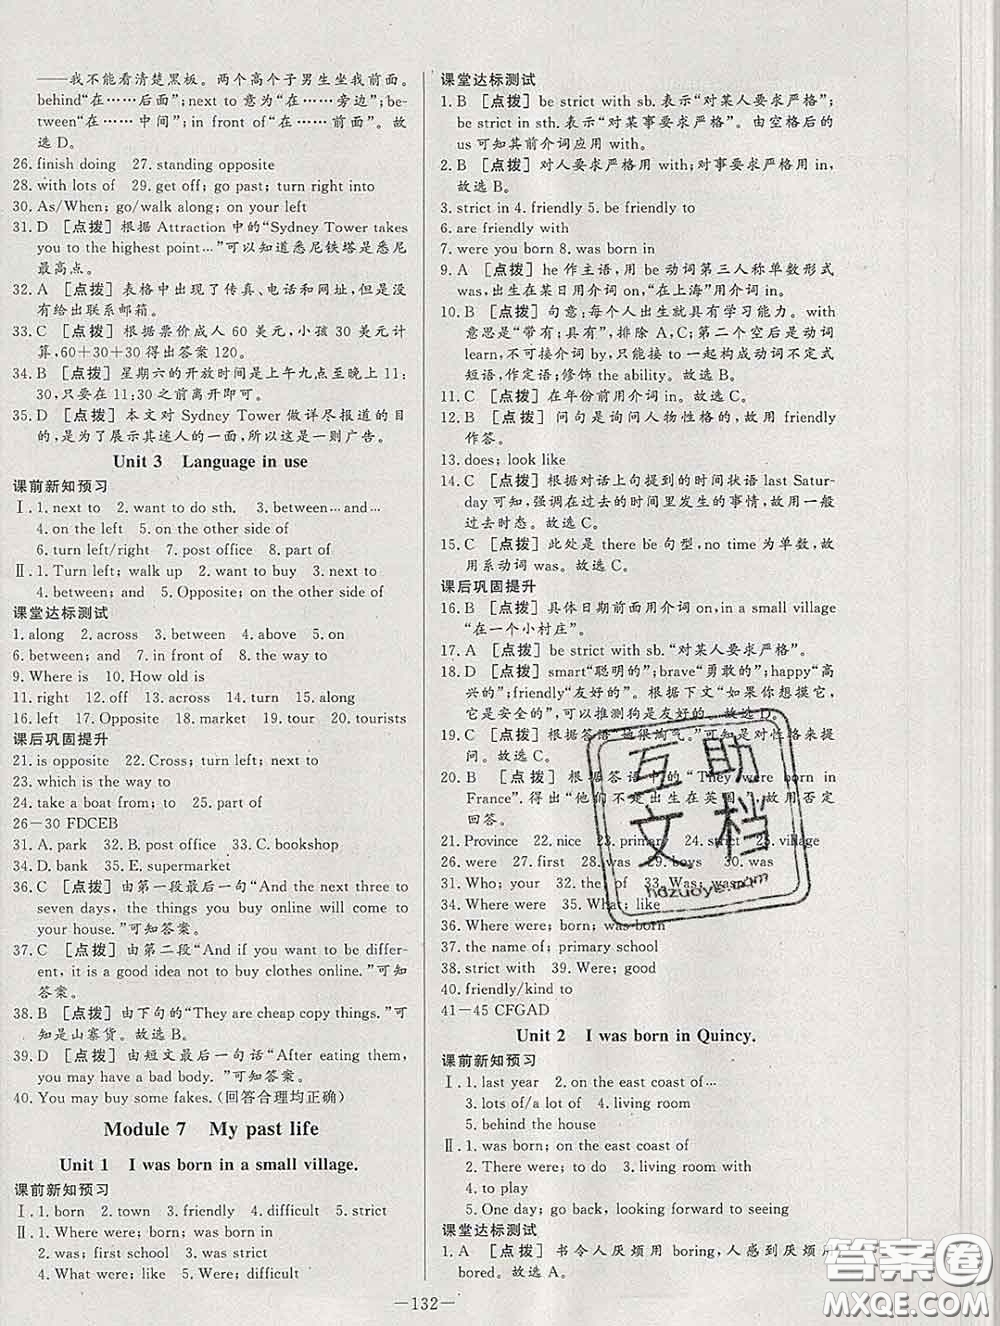 ——我不能看清楚黑板。两个高个子男生坐我前面。
behind“在……后面”;next to 意为“在……旁边”;be-
tween“在……中间”;in front of“在……前面”。故
选 D。
26. finish doing 27. standing opposite
28. with lots of 29. get off; go past; turn right into
30. As/When; go/walk along; on your left
31. D [点拨] 根据 Attraction 中的“Sydney Tower takes
you to the highest point…”可以知道悉尼铁塔是悉尼
最高点。
32. A [点拨] 表格中出现了传真、电话和网址,但是没
有给出联系邮箱。
33. C [点拨] 根据票价成人 60 美元,小孩 30 美元计
算,60+30+30 得出答案 120。
34. B [点拨] 星期六的开放时间是上午九点至晚上 11:
30,只要在 11:30 之前离开即可。
35. D [点拨] 本文对 Sydney Tower 做详尽报道的目
的,是为了展示其迷人的一面,所以这是一则广告。
Unit 3 Language in use
课前新知预习
Ⅰ. 1. next to 2. want to do sth. 3. between…and…
4. on the left 5. on the other side of
6. turn left/right 7. post office 8. part of
Ⅱ. 1. Turn left; walk up 2. want to buy 3. next to
4. between; and 5. Opposite; on the other side of
课堂达标测试
1. along 2. across 3. between 4. above 5. on
6. between; and 7. in front of 8. the way to
9. Where is 10. How old is
11. right 12. off 13. past 14. turn 15. along
16. left 17. Opposite 18. market 19. tour 20. tourists
课后巩固提升
21. is opposite 22. Cross; turn left; next to
23. which is the way to
24. take a boat from; to 25. part of
26—30 FDCEB
31. A. park 32. B. post office 33. C. bookshop
34. D. bank 35. E. supermarket
36. C [点拨] 由第一段最后一句“And the next three to
seven days, the things you buy online will come to
your house.”可知答案。
37. C [点拨] 由第二段“And if you want to be differ-
ent, it is a good idea not to buy clothes online.”可知
答案。
38. B [点拨] 由下句的“They are cheap copy things.”可
知是山寨货。故选 B。
39. D [点拨] 由短文最后一句话“After eating them,
you may have a bad body.”可知答案。
40. You may buy some fakes. (回答合理均正确)
Module 7 My past life
Unit 1 I was born in a small village.
课前新知预习
Ⅰ. 1. born 2. town 3. friendly 4. difficult 5. strict
Ⅱ. 1. Where were; born; was born in
2. was; first school 3. was strict
4. What were; like 5. Were; difficult
课堂达标测试
1. B [点拨] be strict with sb. 表示“对某人要求严格”;
be strict in sth. 表示“对某事要求严格”。由空格后的
us 可知其前介词应用 with。
2. B [点拨] 对人要求严格用 with;对事要求严格用 in,
故选 B。
3. strict in 4. friendly 5. be friendly to
6. are friendly with
7. were you born 8. was born in
9. A [点拨] he 作主语,用 be 动词第三人称单数形式
was,出生在某日用介词 on,“在上海”用介词 in。
10. B [点拨] 句意:每个人出生就具有学习能力。with
意思是“带有;具有”,排除 A,C;第二个空后是动词
learn,不可接介词 by,只能接 to 一起构成动词不定式
短语,作定语;修饰 the ability。故选 B。
11. C [点拨] 在年份前用介词 in。故选 C。
12. B [点拨] 问句是询问人物性格的,故用 friendly
作答。
13. does; look like
14. C [点拨] 根据对话上句提到的时间状语 last Satur-
day 可知,强调在过去的时间里发生的事情,故用一般
过去时态。故选 C。
15. C [点拨] 此处是 there be 句型,no time 为单数,故
用系动词 was。故选 C。
课后巩固提升
16. B [点拨] 具体日期前面用介词 on,in a small village
“在一个小村庄”。
17. A [点拨] be strict with sb. “对某人要求严格”。
18. D [点拨] smart“聪明的”;brave“勇敢的”;happy“高
兴的”;friendly“友好的”。根据下文“如果你想摸它,
它是安全的”,可以推测狗是友好的。故选 D。
19. C [点拨] 根据答语“她很淘气。”可知是对性格来提
问。故选 C。
20. B [点拨] 根据答语中的“They were born in
France”.得出“他们不是出生在英国”,故用否定
回答。
21. Province 22. nice 23. primary 24. strict 25. village
26. were 27. first 28. was 29. boys 30. was
31. Who; your 32. of 33. Was; wasn't
34. Where were 35. What; like
36. Where were; born; was born
37. the name of; primary school
38. strict with 39. Were; good
40. friendly/kind to
41—45 CFGAD
Unit 2 I was born in Quincy.
课前新知预习
Ⅰ. 1. last year 2. on the east coast of…
3. lots of/a lot of 4. living room
5. behind the house
Ⅱ. 1. was born; on the east coast of
2. There were; to do 3. living room with
4. to play
5. One day; go back, looking forward to seeing
课堂达标测试
1. A [点拨] 书令人厌烦用 boring,人感到厌烦用
bored。故选 A。
—132—
互助
文档
hdzuoye.com
答案圈
MXQE.COM